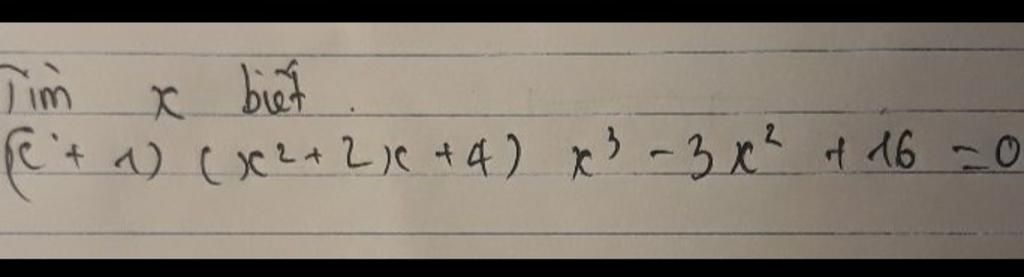 Tìm x biết.
(x + 1) (x² + 2x + 4) x³ - 3x² + 16 = 0